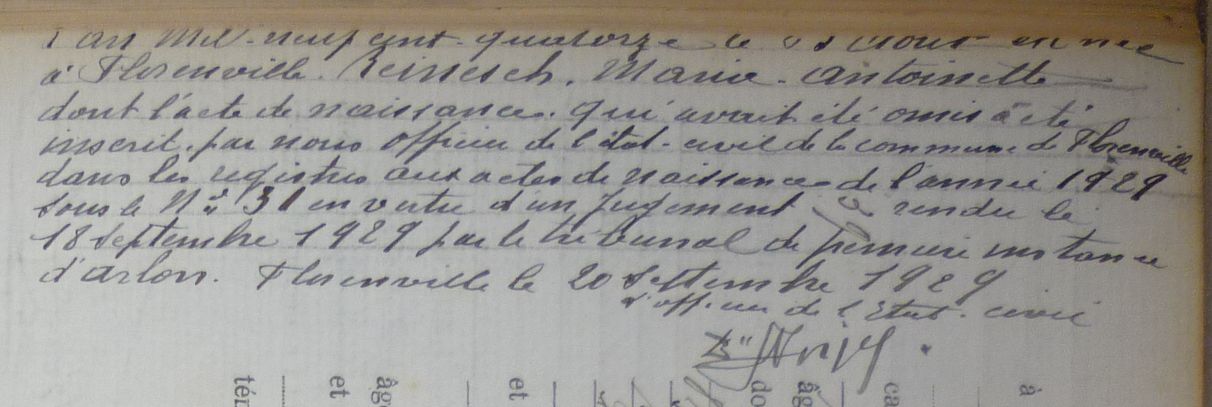 l'an Mil-neuf cent-quatorze le août est née
à Florenville. Reinesch. Marie. Antoinette
dont l'acte de naissance. qui avait été omis à été
inscrit. par nous officier de l'état-civil de la commune de Florenville
dans les registres aux actes de naissances de l'année 1929
sous le N° 31 en vertu d'un jugement rendu le
18 septembre 1929 par le tribunal de premiere instance
d'arlon. Florenville le 20 septembre 1929
L'officier de l'Etat-civil
té
et
âg
et
do
âg
ca
à